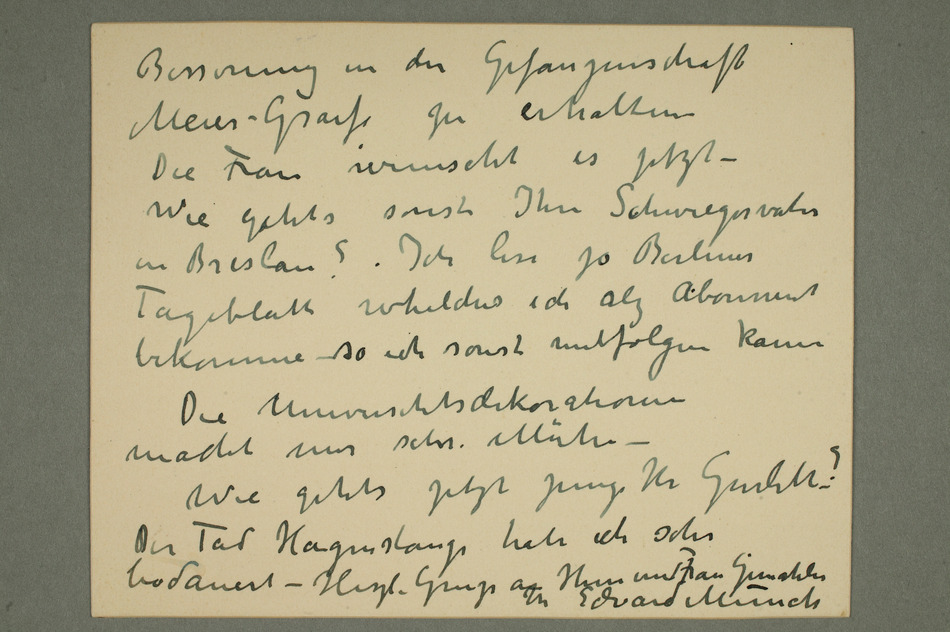 Besserung in der Gefangenschaft
Meier-Graefe zu erhalten
Die Frau wunscht es jetzt –
Wie gehts sonst Ihr Schwiegervater
in Breslau? . Ich lese jo Berliner
Tageblatt ich als Abonnent
bekomme – so ich sonst mitfolgen kann
Die Universitetsdekorationen
macht mir sehr Mühe –
Wie gehts jetzt junge Hr Gurlitt –?
Der Tod Hagenstangs habe ich sehr
bedauert – Herzl. Gruss an Ihnen und Frau
Ihr Edvard Munch